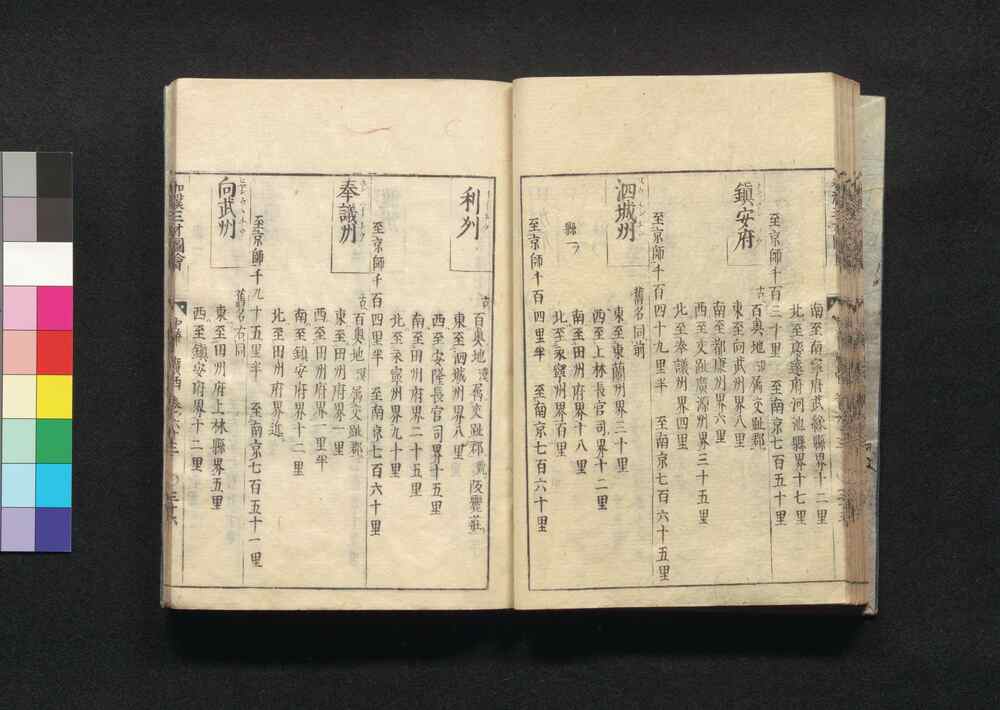 南至南寧府武緣縣界十二里
北至慶遠府河池縣界十七里
至京師千百三十里 至南京七百五十里
鎮安府
古百奥地 漢屬交趾郡
東至向武州界八里
南至都康州界六里
西至交趾廣源州界三十五里
北至奉議州界四里
至京師千百四十九里半 至南京七百六十五里
泗城州
舊名同前
東至東蘭州界三十里
西至上林長官司界十二里
縣一
南至田州府界十八里
北至永寧州界百里
至京師千百四里半 至南京七百六十里
利列
古百奥地 漢屬交趾郡 黄陂豐莊
東至泗城州界八里
西至安隆長官司界十五里
南至田州府界二十五里
北至永寧州界九十里
至京師千百四里半 至南京七百六十里
奉議州
古百奥地 漢屬交趾郡
東至田州府界一里
西至田州府界一里半
南至鎮安府界十二里
北至田州府界
至京師千九十五里半 至南京七百五十一里
向武州
舊名右同
東至田州府上林縣界五里
西至鎮安府界十二里
和漢三才圖會